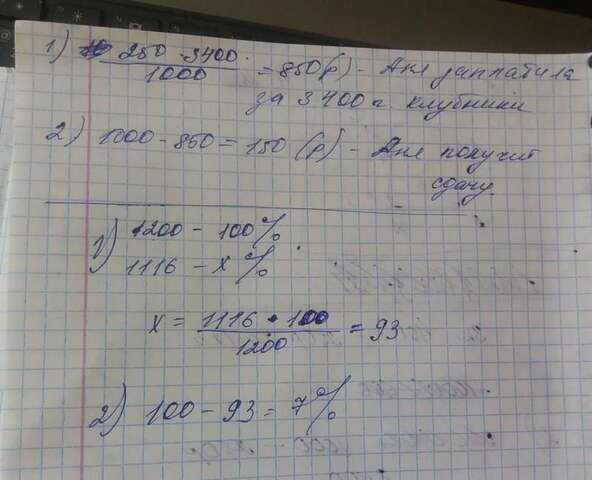 1) 250 · 3400 / 1000 = 850 (р) - Аня заплатила
за 3400 г клубники
2) 1000 - 850 = 150 (р) - Аня получит
сдачу.
1) 1200 - 100%
1116 - х %
х = 1116 · 100 / 1200 = 93
2) 100 - 93 = 7%